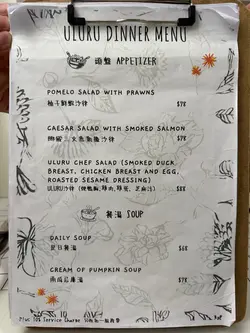 ULURU DINNER MENU
頭盤 APPETIZER
POMELO SALAD WITH PRAWNS
柚子鮮蝦沙律 $78
CAESAR SALAD WITH SMOKED SALMON
$78
ULURU CHEF SALAD (SMOKED DUCK,
BREAST, CHICKEN BREAST AND EGG,
ROASTED SESAME DRESSING)
$88
餐湯 SOUP
DAILY SOUP
是日餐湯 $68
CREAM OF PUMPKIN SOUP
南瓜忌廉湯 $78
Plus 10% Service Charge 另收加一服務費